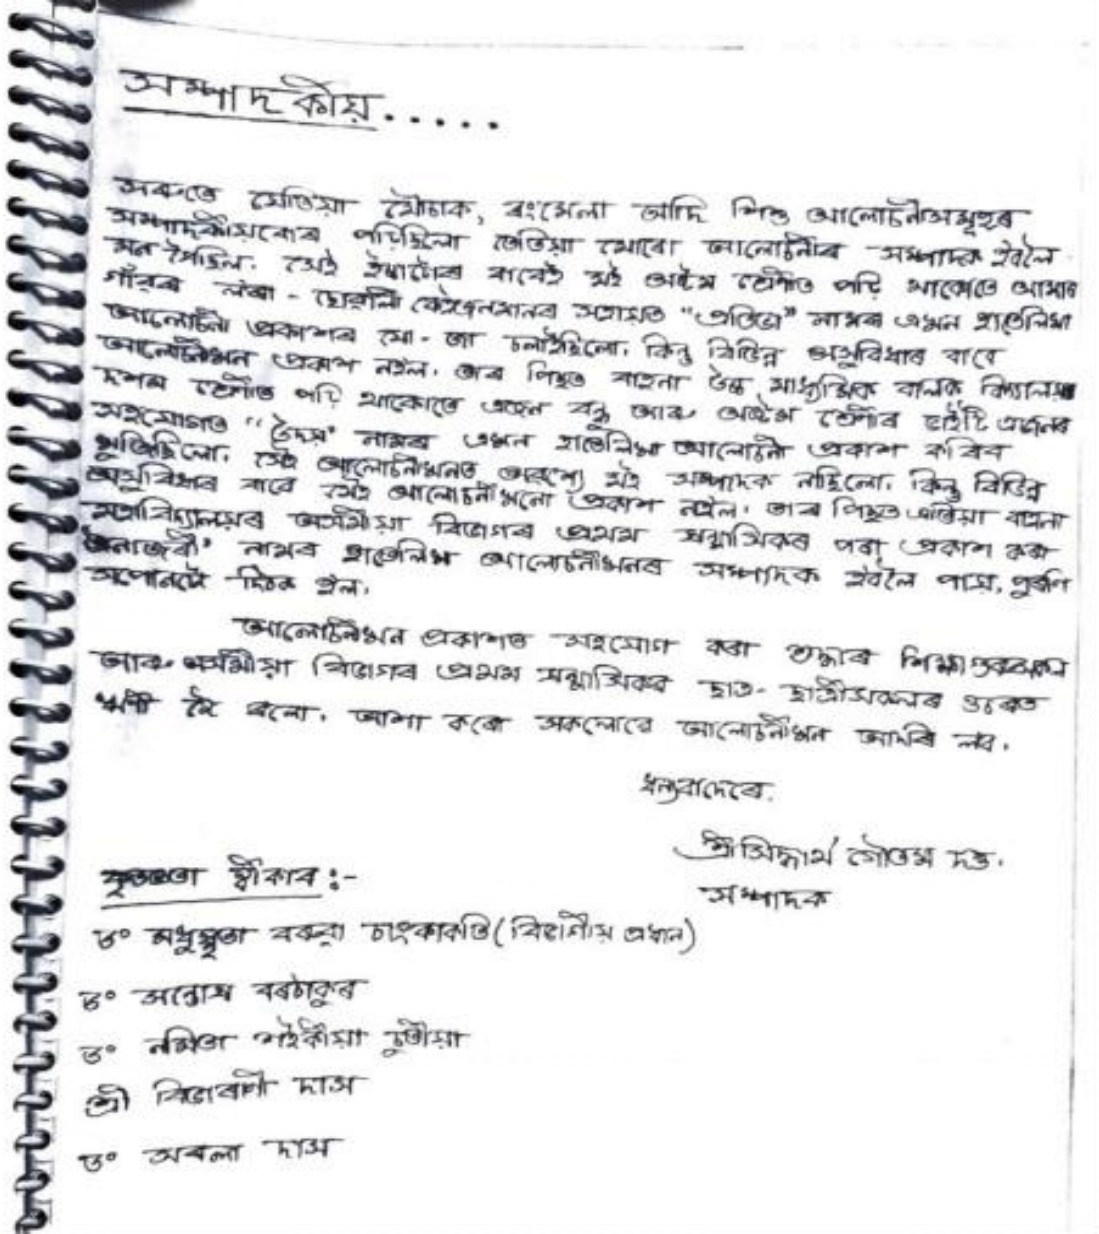 সম্পাদকীয়.....
সৰুতে যেতিয়া মৌচাক, ৰংমেলা আদি শিশু আলোচনীসমূহৰ
সম্পাদকীয়বোৰ পঢ়িছিলো তেতিয়া মোৰো আলোচনীৰ সম্পাদক হবলৈ
মন গৈছিল। সেই ইচ্ছাটোৰ বাবেই মই অষ্টম শ্ৰেণীত পঢ়ি থাকোতে আমাৰ
গাঁৱৰ লৰা-ছোৱালী কেইজনমানৰ সহায়ত "প্ৰতিভা" নামৰ এখন হাতেলিখা
আলোচনী প্ৰকাশৰ যো-জা চলাইছিলো। কিন্তু বিভিন্ন অসুবিধাৰ বাবে
আলোচনীখন প্ৰকাশ নহল। তাৰ পিছত বাহনা উচ্চ মাধ্যমিক বালক বিদ্যালয়ৰ
দশম শ্ৰেণীত পঢ়ি থাকোতে এজন বন্ধু আৰু অষ্টম শ্ৰেণীৰ ভাইটি এজনৰ
সহযোগত নামৰ এখন হাতেলিখা আলোচনী প্ৰকাশ কৰিব
খুজিছিলো। সেই আলোচনীখনত অৱশ্যে মই সম্পাদক নাছিলো। কিন্তু বিভিন্ন
অসুবিধাৰ বাবে সেই আলোচনীখনো প্ৰকাশ নহল। তাৰ পিছত এতিয়া বাহনা
মহাবিদ্যালয়ৰ অসমীয়া বিভাগৰ প্ৰথম ষন্মাসিকৰ পৰা প্ৰকাশ কৰা
নামৰ হাতেলিখা আলোচনীখনৰ সম্পাদক হবলৈ পায়, পুৰণি
সপোনটো দিঠক হল।
আলোচনীখন প্ৰকাশত সহযোগ কৰা শ্ৰদ্ধাৰ শিক্ষাগুৰুসকল
আৰু অসমীয়া বিভাগৰ প্ৰথম ষন্মাসিকৰ ছাত্ৰ-ছাত্ৰীসকলৰ ওচৰত
ঋণী হৈ ৰলো। আশা কৰো সকলোৱে আলোচনীখন আদৰি লব।
ধন্যবাদেৰে।
শ্ৰীসিদ্ধাৰ্থ গৌতম দত্ত।
সম্পাদক
কৃতজ্ঞতা স্বীকাৰ:-
ড° মধুস্মৃতা বৰুৱা চাংকাকতি (বিভাগীয় প্ৰধান)
ড° সন্তোষ বৰঠাকুৰ
ড° নমিতা শইকীয়া চুতীয়া
শ্ৰী বিভাৰাণী দাস
ড° অৰলা দাস